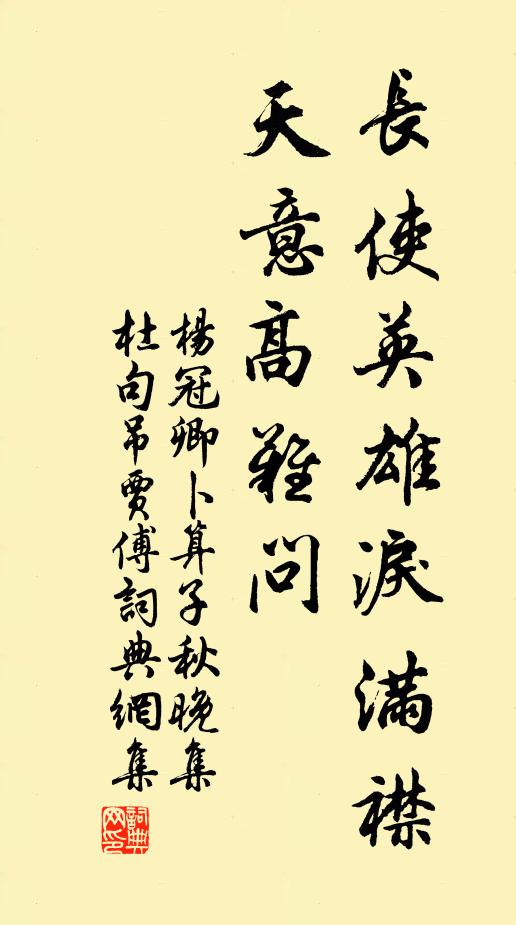 長使英雄淚滿襟
天意高難問
楊冠卿卜算子秋晚集
杜句吊賈傅詞典網集
詞典网印